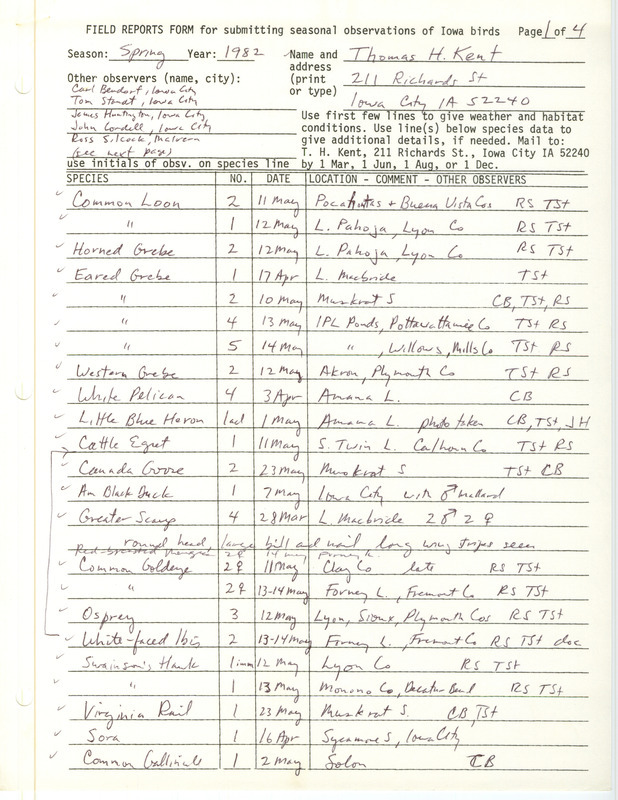 FIELD REPORTS FORM for submitting seasonal observations of Iowa birds Page 1 of 4
Season: Spring Year: 1982 Name and address (print or type) Thomas H. Kent
211 Richards St
Iowa City IA 52240
Other observers (name, city):
Carl Bendorf, Iowa City
Tom Staudt, Iowa City
James Huntington, Iowa City
John Cordell, Iowa City
Ross Silcock, Malvern
(see next page)
use initials of obsv. on species line
Use first few lines to give weather and habitat
conditions. Use line(s) below species data to
give additional details, if needed. Mail to:
T. H. Kent, 211 Richards St., Iowa City IA 52240
by 1 Mar, 1 Jun, 1 Aug, or 1 Dec.
SPECIES NO. DATE LOCATION - COMMENT - OTHER OBSERVERS
Common Loon 2 11 May Pocahontas + Buena Vista Cos RS TSt
" 1 12 May L. Pahoja, Lyon Co RS TSt
Horned Grebe 2 12 May L. Pahoja, Lyon Co RS TSt
Eared Grebe 1 17 Apr L. Macbride TSt
" 2 10 May Muskrat S CB, TSt, RS
" 4 13 May IPL Ponds, Pottawattamie Co TSt RS
" 5 14 May " , Willows, Mills Co TSt RS
Western Grebe 2 12 May Akron, Plymouth Co TSt RS
White Pelican 4 3 Apr Amana L. CB
Little Blue Heron 1ad 1 May Amana L. photo taken CB, TSt, JH
Cattle Egret 1 11 May S. Twin L. Calhoun Co TSt RS
Canada Goose 2 23 May Muskrat S TSt CB
Am Black Duck 1 7 May Iowa City with ♂ mallard
Greater Scaup 4 28 Mar L. Macbride 2♂ 2♀
round head, large bill and nail long wing stripes seen
Red-breasted 2♀ 14 May Forney L.
Common Goldeneye 2♀ 11 May Clay Co late RS TSt
" 2♀ 13-14 May Forney L., Fremont Co RS TSt
Osprey 3 12 May Lyon, Sioux, Plymouth Cos RS TSt
White-faced Ibis 2 13-14 May Forney L., Fremont Co RS TSt doc
Swainson's Hawk 1imm 12 May Lyon Co RS TSt
" 1 13 May Monona Co, Decatur Bend RS TSt
Virginia Rail 1 23 May Muskrat S. CB, TSt
Sora 1 16 Apr Sycamore S, Iowa City
Common Gallinule 1 2 May Solon CB